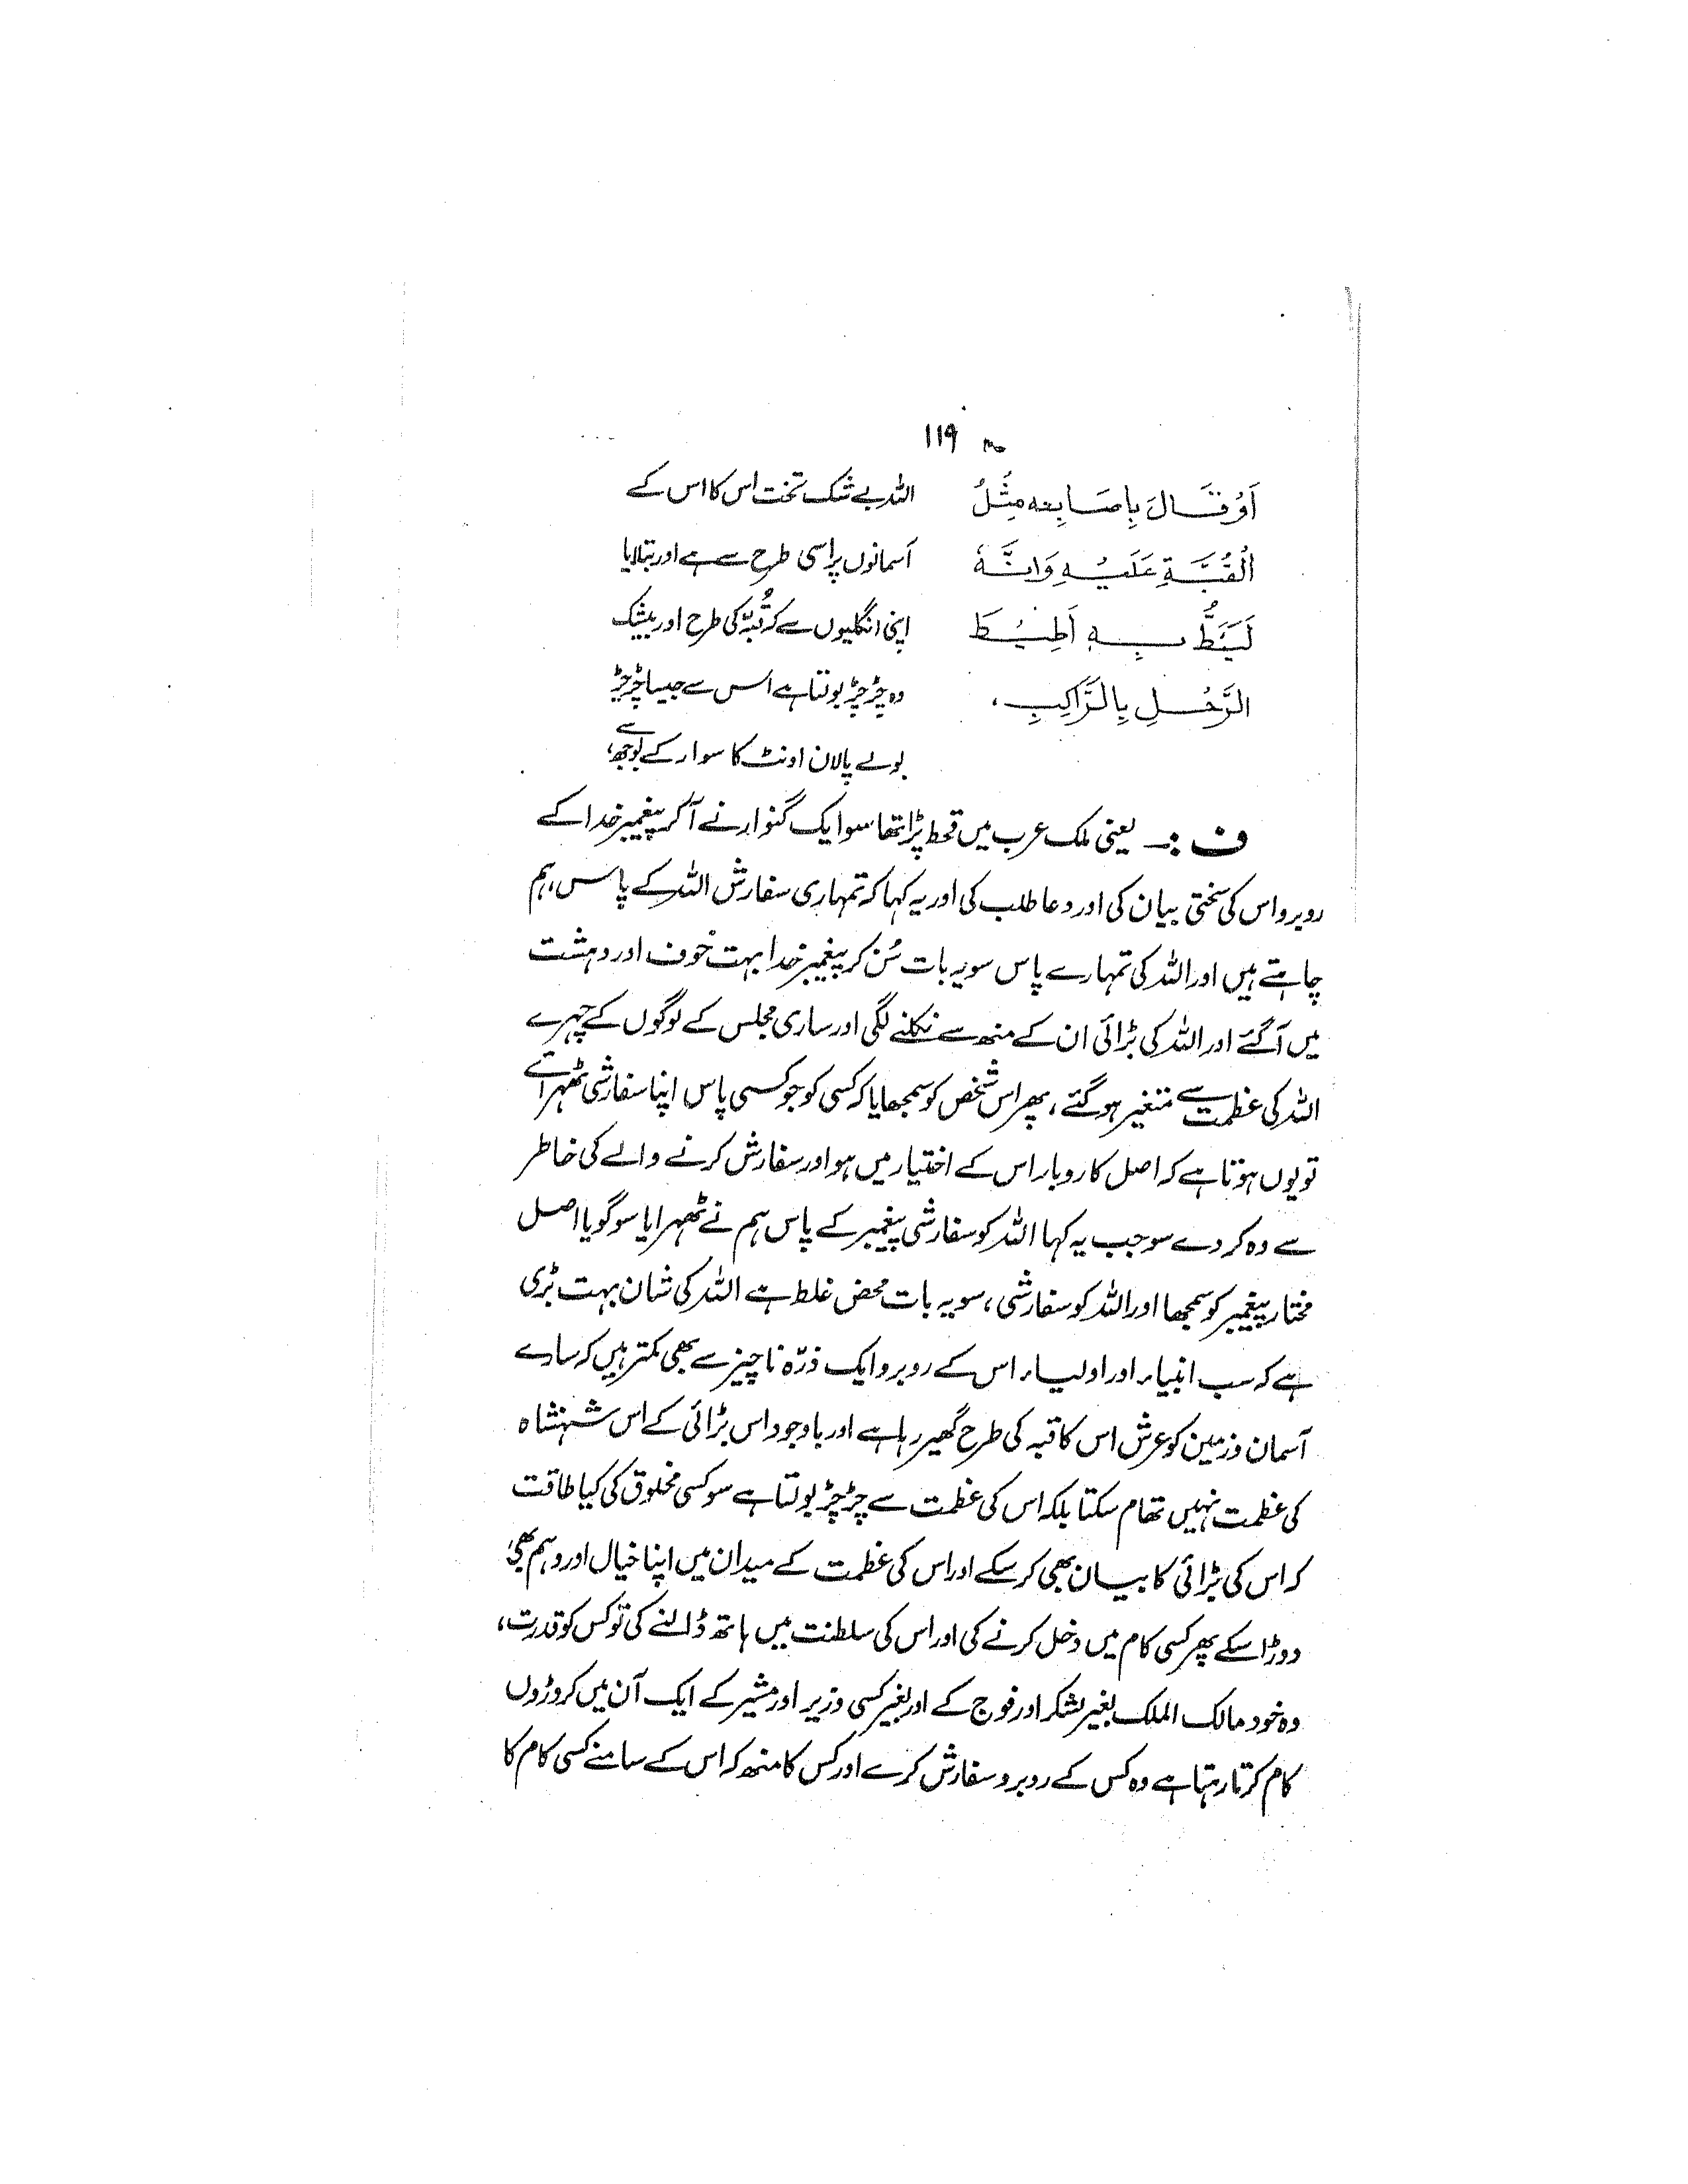 ۱۱۹
اَوْ قَالَ بِاَصَابِعِهٖ مِثْلُ
الْقُبَّةِ عَلَيْهِ وَاِنَّهٗ
لَيَئِطُّ بِهٖ اَطِيْطَ
الرَّحْلِ بِالرَّاكِبِ،
اللہ بے شک تخت اس کا اس کے
آسمانوں پر اسی طرح سے ہے اور بتلایا
اپنی انگلیوں سے کہ قُبّہ کی طرح اور بیشک
وہ چڑچڑ بولتا ہے اس سے جیسا چڑچڑ
بولے پالان اونٹ کا سوار کے بوجھ سے،
ف :۔ یعنی ملک عرب میں قحط پڑا تھا سو ایک گنوار نے آکر پیغمبر خدا کے
روبرو اس کی سختی بیان کی اور دعا طلب کی اور یہ کہا کہ تمہاری سفارش اللہ کے پاس ہم
چاہتے ہیں اور اللہ کی تمہارے پاس سو یہ بات سُن کر پیغمبر خدا بہت خوف اور دہشت
میں آگئے اور اللہ کی بڑائی ان کے منھ سے نکلنے لگی اور ساری مجلس کے لوگوں کے چہرے
اللہ کی عظمت سے متغیر ہوگئے، پھر اس شخص کو سمجھایا کہ کسی کو جو کسی پاس اپنا سفارشی ٹھہرائے
تو یوں ہوتا ہے کہ اصل کاروبار اس کے اختیار میں ہو اور سفارش کرنے والے کی خاطر
سے وہ کر دے سو جب یہ کہا اللہ کو سفارشی پیغمبر کے پاس ہم نے ٹھہرایا سو گویا اصل
مختار پیغمبر کو سمجھا اور اللہ کو سفارشی، سو یہ بات محض غلط ہے اللہ کی شان بہت بڑی
ہے کہ سب انبیاء اور اولیاء اس کے روبرو ایک ذرّہ ناچیز سے بھی کمتر ہیں کہ سارے
آسمان و زمین کو عرش اس کا قبہ کی طرح گھیر رہا ہے اور باوجود اس بڑائی کے اس شہنشاہ
کی عظمت نہیں تھام سکتا بلکہ اس کی عظمت سے چڑچڑ بولتا ہے سو کسی مخلوق کی کیا طاقت
کہ اس کی بڑائی کا بیان بھی کر سکے اور اس کی عظمت کے میدان میں اپنا خیال اور وہم بھی
دوڑا سکے پھر کسی کام میں دخل کرنے کی اور اس کی سلطنت میں ہاتھ ڈالنے کی تو کس کو قدرت،
وہ خود مالک الملک بغیر لشکر اور فوج کے اور بغیر کسی وزیر اور مشیر کے ایک آن میں کروڑوں
کام کرتا رہتا ہے وہ کس کے روبرو سفارش کرے اور کس کا منھ کہ اس کے سامنے کسی کام کا